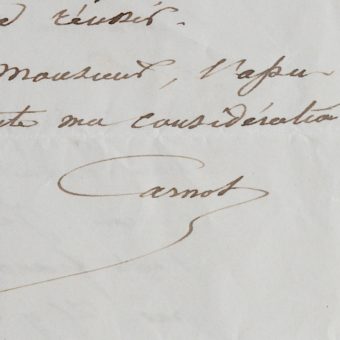 réussir.
Monsieur, l'assu-
ma considération
Carnot